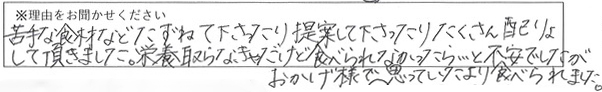 ※理由をお聞かせください
苦手な食材などたずねて下さったり提案して下さったりたくさん配りょ
して頂きました。栄養取らなきゃだけど食べられなかったら…と不安でしたが
おかげ様で思っていたより食べられました。